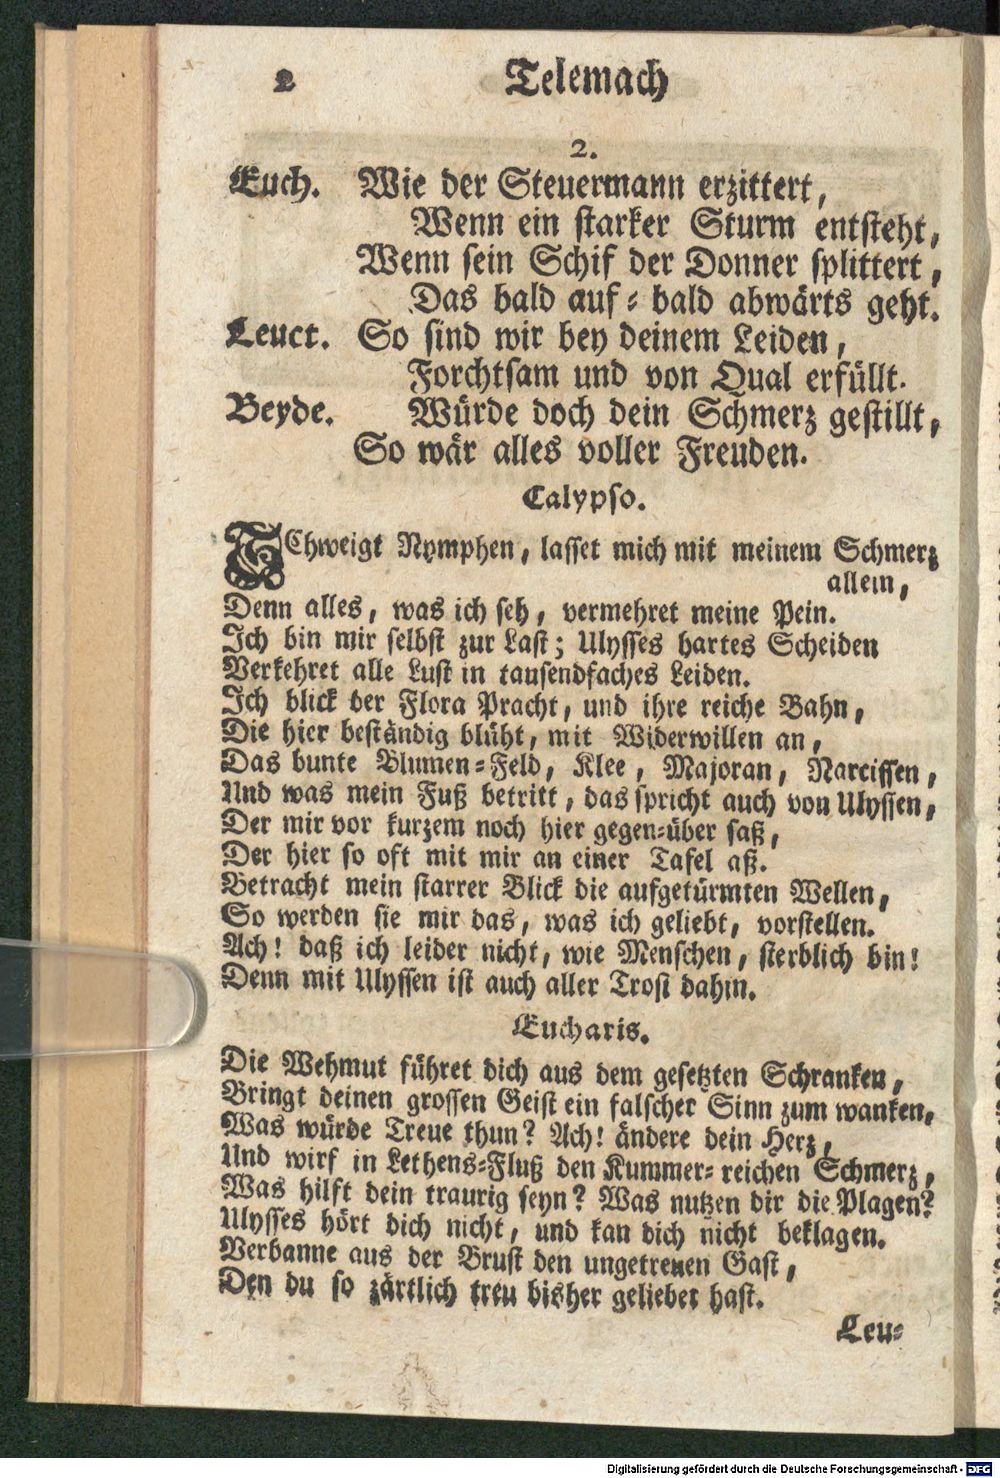 2 Telemach
2.
Euch. Wie der Steuermann erzittert,
Wenn ein starker Sturm entsteht,
Wenn sein Schif der Donner splittert,
Das bald auf- bald abwärts geht.
Leuct. So sind wir bey deinem Leiden,
Forchtsam und von Qual erfüllt.
Beyde. Würde doch dein Schmerz gestillt,
So wär alles voller Freuden.
Calypso.
SChweigt Nymphen, lasset mich mit meinem Schmerz
allein,
Denn alles, was ich seh, vermehret meine Pein.
Ich bin mir selbst zur Last; Ulysses hartes Scheiden
Verkehret alle Lust in tausendfaches Leiden.
Ich blick der Flora Pracht, und ihre reiche Bahn,
Die hier beständig blüht, mit Widerwillen an,
Das bunte Blumen-Feld, Klee, Majoran, Narcissen,
Und was mein Fuß betritt, das spricht auch von Ulyssen,
Der mir vor kurzem noch hier gegen-über saß,
Der hier so oft mit mir an einer Tafel aß.
Betracht mein starrer Blick die aufgetürmten Wellen,
So werden sie mir das, was ich geliebt, vorstellen.
Ach! daß ich leider nicht, wie Menschen, sterblich bin!
Denn mit Ulyssen ist auch aller Trost dahin.
Eucharis.
Die Wehmut führet dich aus dem gesetzten Schranken,
Bringt deinen grossen Geist ein falscher Sinn zum wanken,
Was würde Treue thun? Ach! ändere dein Herz,
Und wirf in Lethens-Fluß den Kummer-reichen Schmerz,
Was hilft dein traurig seyn? Was nutzen dir die Plagen?
Ulysses hört dich nicht, und kan dich nicht beklagen.
Verbanne aus der Brust den ungetreuen Gast,
Den du so zärtlich treu bisher geliebet hast.
Leu-
Digitalisierung gefördert durch die Deutsche Forschungsgemeinschaft - DFG